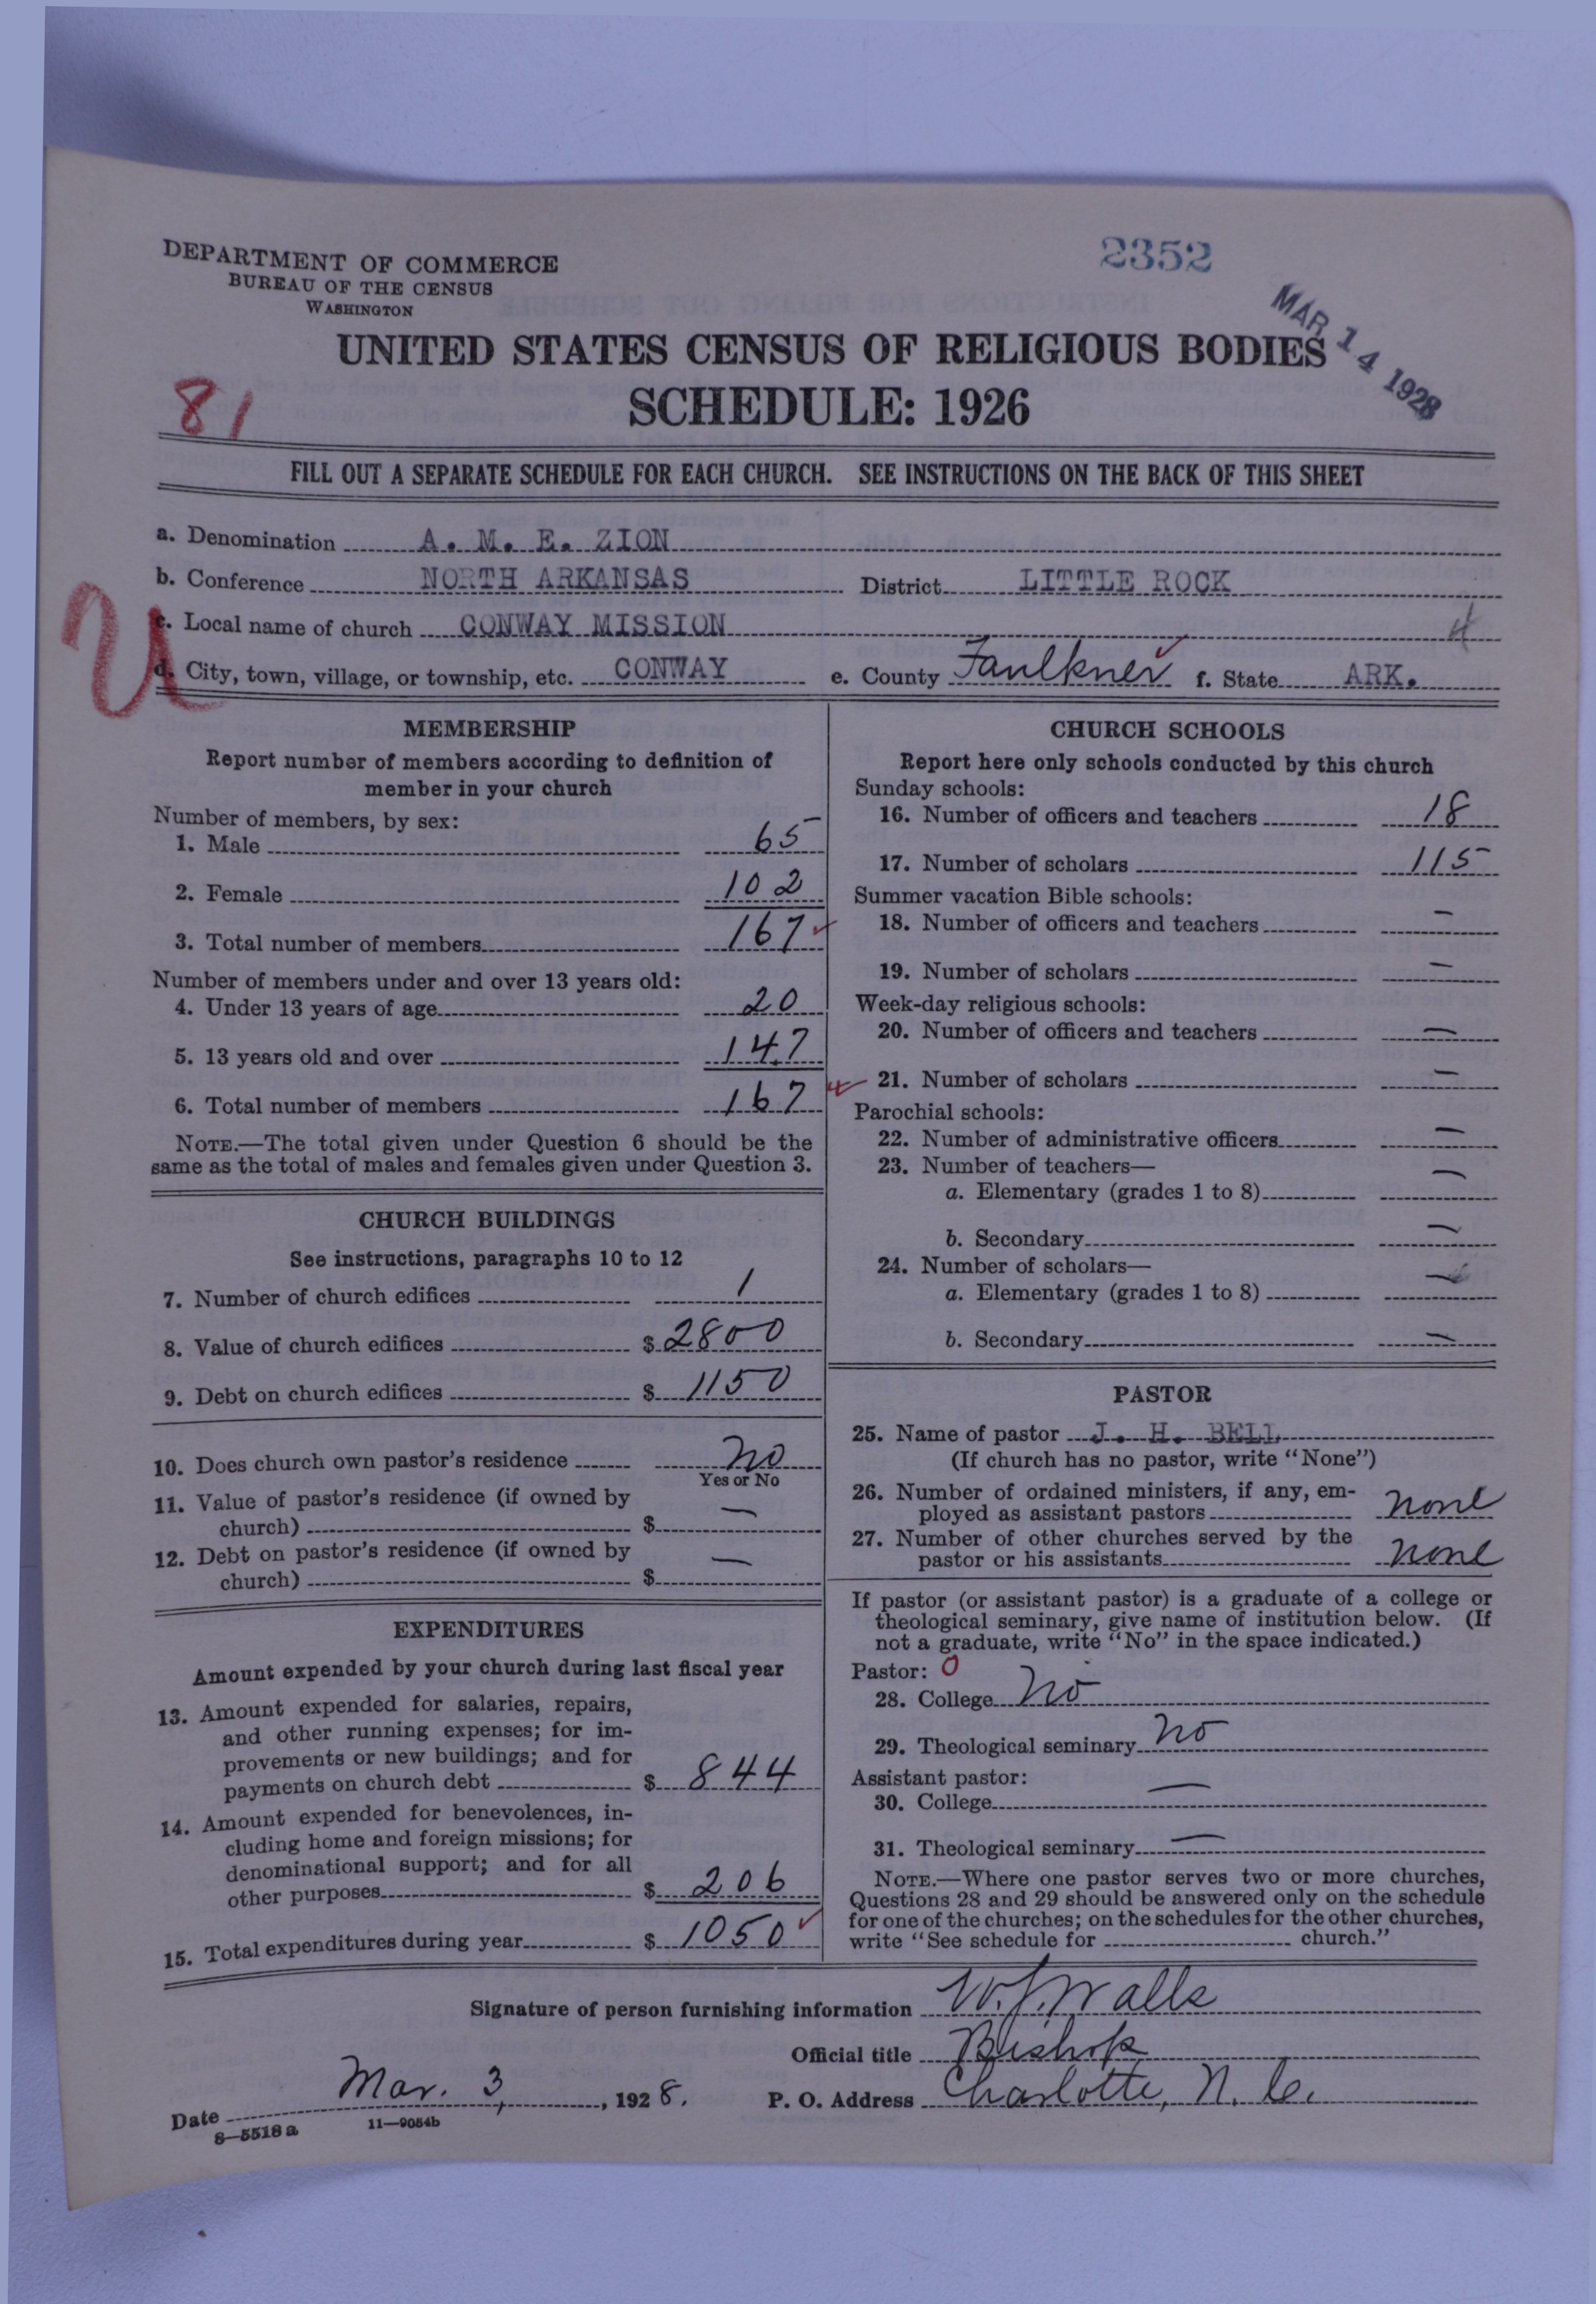 DEPARTMENT OF COMMERCE
BUREAU OF THE CENSUS
WASHINGTON
2352
MAR 14 1928
UNITED STATES CENSUS OF RELIGIOUS BODIES
SCHEDULE: 1926
81
FILL OUT A SEPARATE SCHEDULE FOR EACH CHURCH. SEE INSTRUCTIONS ON THE BACK OF THIS SHEET
a. Denomination A. M. E. ZION
b. Conference NORTH ARKANSAS District LITTLE ROCK
c. Local name of church CONWAY MISSION 4
U
d. City, town, village, or township, etc. CONWAY e. County Faulkner f. State ARK.
MEMBERSHIP
Report number of members according to definition of
member in your church
Number of members, by sex:
1. Male 65
2. Female 102
3. Total number of members 167
Number of members under and over 13 years old:
4. Under 13 years of age 20
5. 13 years old and over 147
6. Total number of members 167
NOTE.—The total given under Question 6 should be the
same as the total of males and females given under Question 3.
CHURCH BUILDINGS
See instructions, paragraphs 10 to 12
7. Number of church edifices 1
8. Value of church edifices $ 2800
9. Debt on church edifices $ 1150
10. Does church own pastor's residence no
Yes or No
11. Value of pastor's residence (if owned by
church) $ —
12. Debt on pastor's residence (if owned by
church) $ —
EXPENDITURES
Amount expended by your church during last fiscal year
13. Amount expended for salaries, repairs,
and other running expenses; for im-
provements or new buildings; and for
payments on church debt $ 844
14. Amount expended for benevolences, in-
cluding home and foreign missions; for
denominational support; and for all
other purposes $ 206
15. Total expenditures during year $ 1050
CHURCH SCHOOLS
Report here only schools conducted by this church
Sunday schools:
16. Number of officers and teachers 18
17. Number of scholars 115
Summer vacation Bible schools:
18. Number of officers and teachers —
19. Number of scholars —
Week-day religious schools:
20. Number of officers and teachers —
21. Number of scholars —
Parochial schools:
22. Number of administrative officers —
23. Number of teachers—
a. Elementary (grades 1 to 8) —
b. Secondary —
24. Number of scholars—
a. Elementary (grades 1 to 8) —
b. Secondary —
PASTOR
25. Name of pastor J. H. BELL
(If church has no pastor, write "None")
26. Number of ordained ministers, if any, em-
ployed as assistant pastors none
27. Number of other churches served by the
pastor or his assistants none
If pastor (or assistant pastor) is a graduate of a college or
theological seminary, give name of institution below. (If
not a graduate, write "No" in the space indicated.)
Pastor: 0
28. College no
29. Theological seminary no
Assistant pastor:
30. College —
31. Theological seminary —
NOTE.—Where one pastor serves two or more churches,
Questions 28 and 29 should be answered only on the schedule
for one of the churches; on the schedules for the other churches,
write "See schedule for church."
Signature of person furnishing information W. J. Walls
Official title Bishop
Date Mar. 3, 1928. P. O. Address Charlotte, N. C.
8—5518a 11—9054b